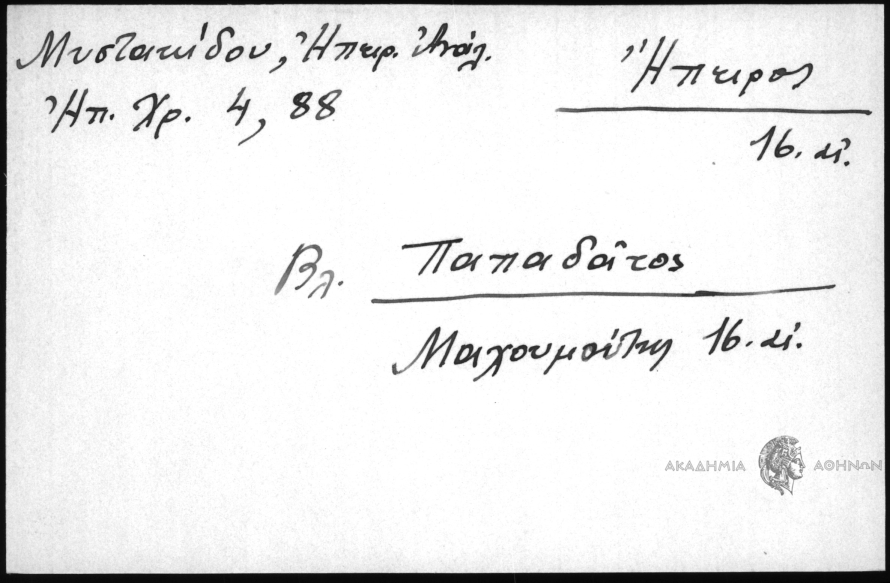 Μυστακίδου, Ἠπειρ. Ἀνάλ.
Ἠπ. Χρ. 4, 88
Ἤπειρος
16. αἰ.
Βλ. Παπαδᾶτος
Μαχουμούτης 16. αἰ.
ΑΚΑΔΗΜΙΑ ΑΘΗΝΩΝ